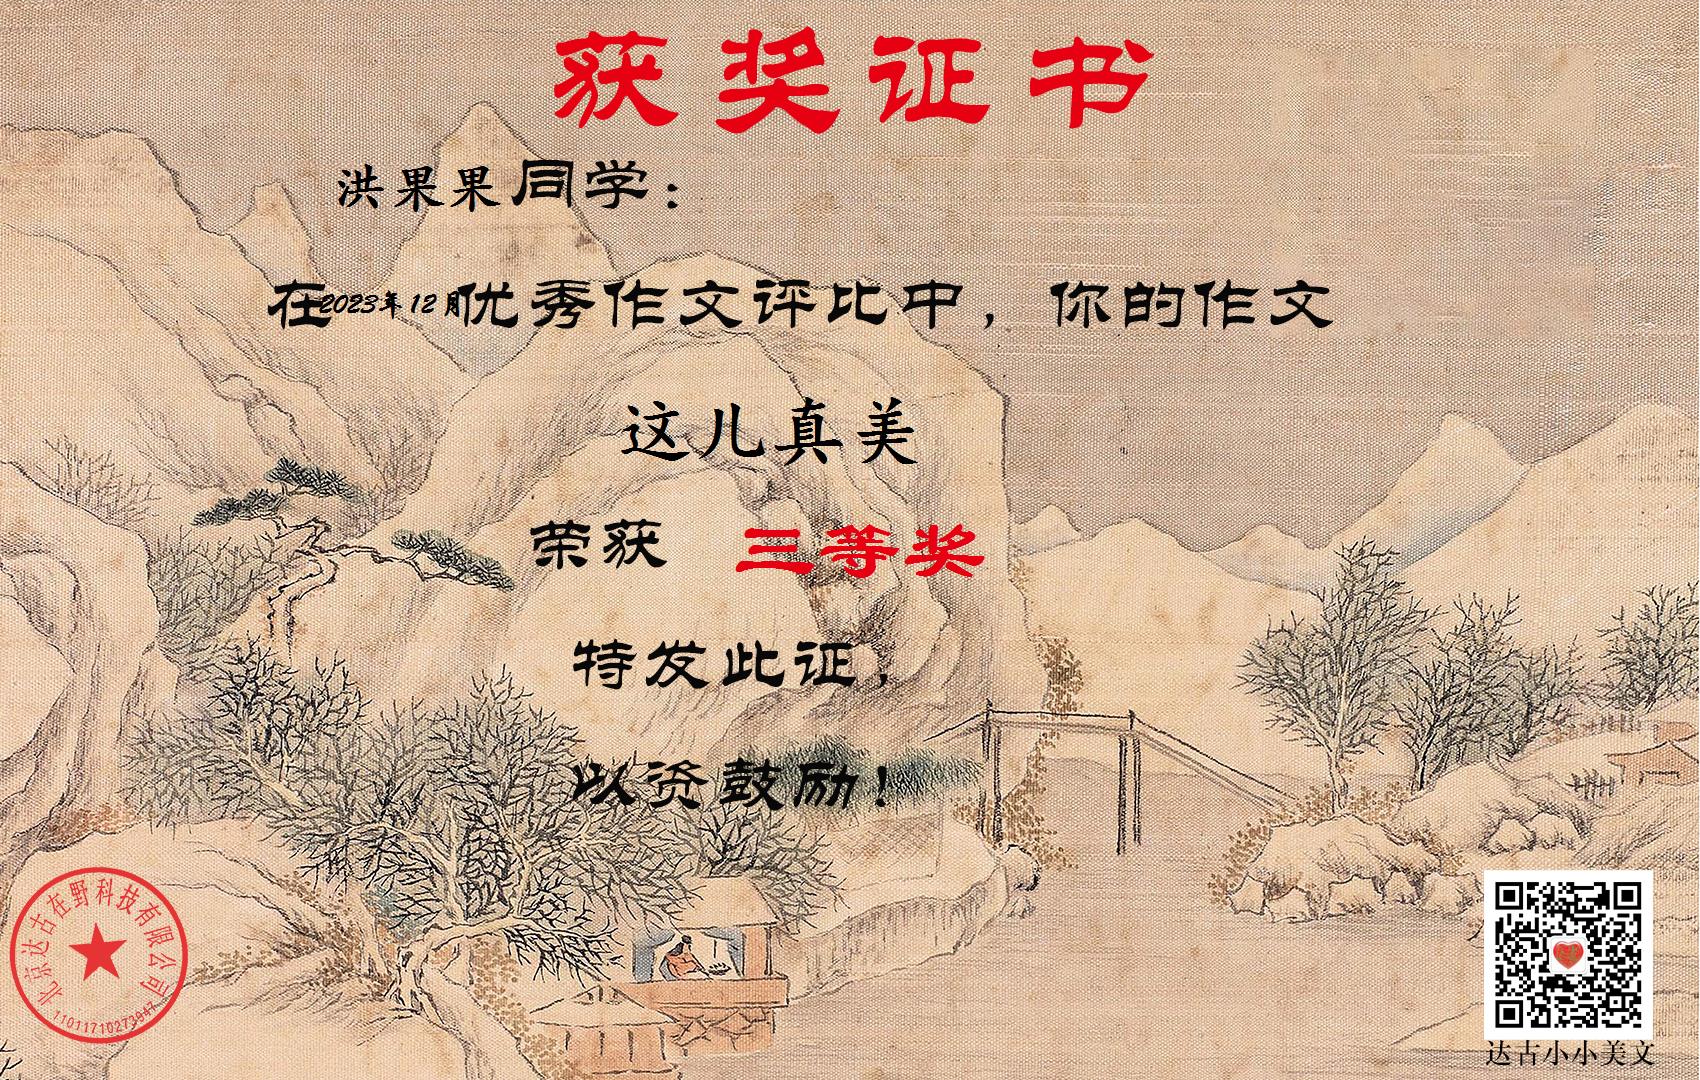 获奖证书
洪果果同学：
在2023年12月优秀作文评比中，你的作文
这儿真美
荣获 三等奖
特发此证，
以资鼓励！
北京达古在野科技有限公司
11011710273947
达古小小美文